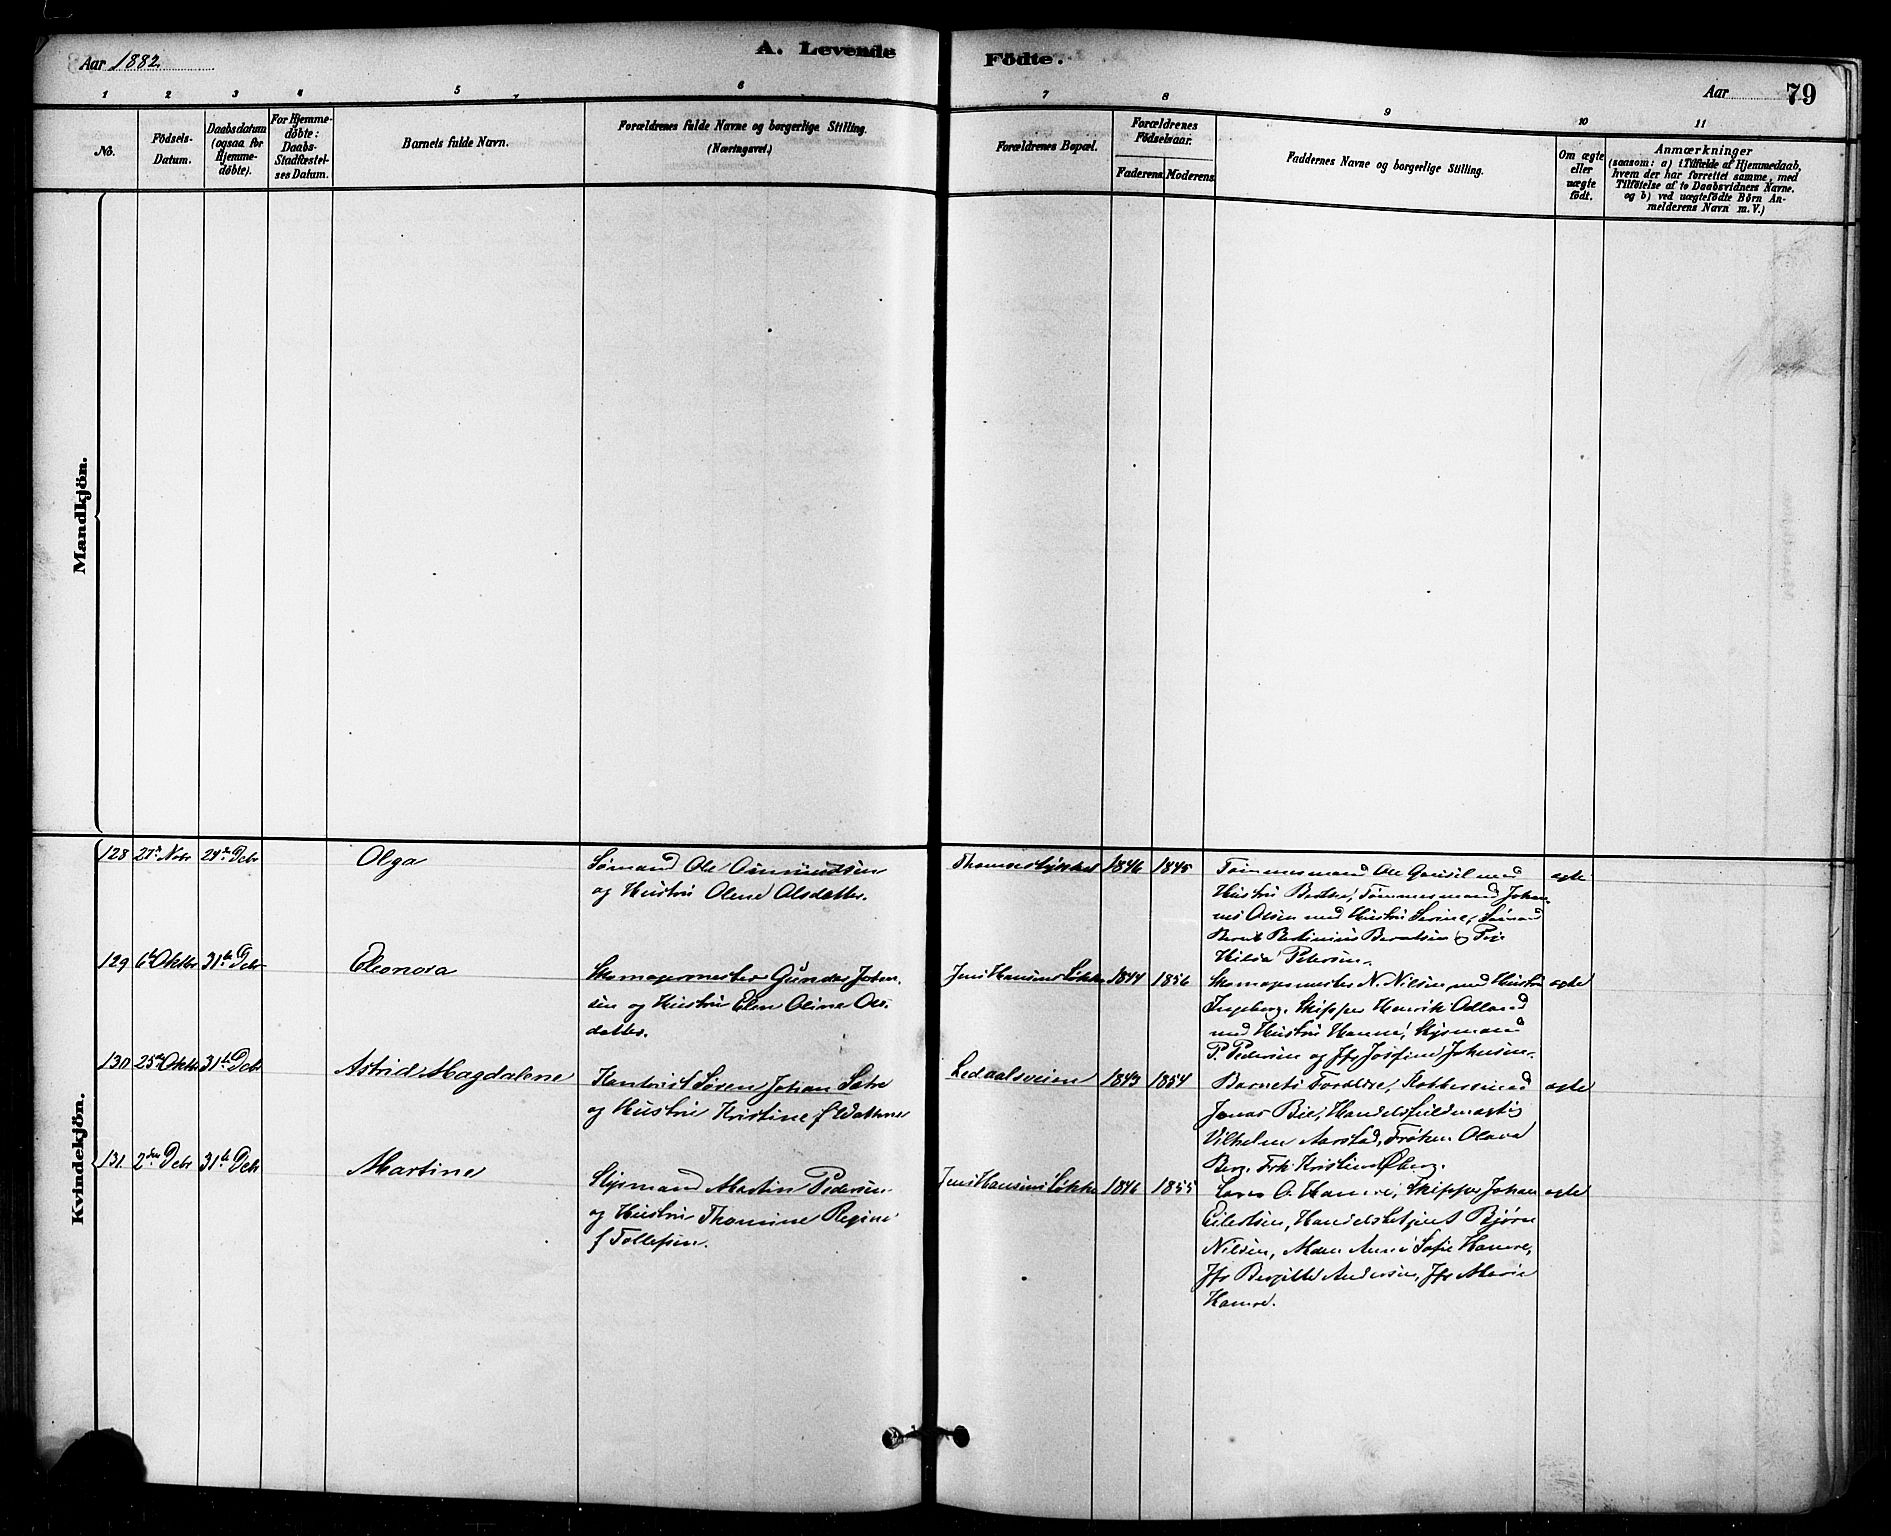 Aar 1882.
A. Levende Födte.
Aar 79
1 2 3 4 5 6 7 8 9 10 11
No.
Födsels-
Datum.
Daabsdatum
(ogsaa for
Hjemme-
døbte).
For Hjemme-
døbte:
Daabs-
Stadfæstel-
ses Datum.
Barnets fulde Navn.
Forældrenes fulde Navne og borgerlige Stilling.
(Næringsvei.)
Forældrenes Bopæl.
Forældrenes
Födselsaar.
Faderens. Moderens.
Faddernes Navne og borgerlige Stilling.
Om ægte
eller
uægte
født.
Anmærkninger
(saasom: a) i Tilfælde af Hjemmedaab,
hvem der har forrettet samme, med
Tilföielse af to Daabsvidners Navne.
og b) ved uægtefödte Børn An-
melderens Navn m. V.)
Mandkjön.
Kvindekjön.
128 Novbr Debr Olga
Sømand Ole
og Hustru Olene Olsdatter.
1846 1845
Tømmermand Ole med
Hustru Tømmermand Johan-
nes Olsen med Hustru Serine, Sømand
Berent Bertinius Berntsen og Pige
Hilda Petersen.
ægte
129 6te Oktbr 31te Debr Eleonora
Skomagermester Gunder Johan-
sen og Hustru Elen Oline Ols-
datter.
Jens Hansens Løkke 1844 1856
Skomagermester N. Nilsen med Hustru
Ingeborg, Skipper Henrik Odland
med Hustru Hanne,
P. Pedersen og Jfr Josefine Johnsen.
ægte
130 25de Oktbr 31te Debr Astrid Magdalene
Søren Johan
og Hustru Kristine f.
Ledaalsveien 1843 1854
Barnets Forældre, Kobbersmed
Jonas Handelsfuldmægtig
Vilhelm Aarstad, Frøken Olava
Berg, Frk Kristine Øberg.
ægte
131 2den Debr 31te Debr Martine
Martin Pedersen
og Hustru Thomine Regine
f Tollefsen.
Jens Hansens Løkke 1846 1855
O. Hamre, Skipper Johan
Eilertsen, Handelsbetjent Bjørn
Nilsen, Anne Sofie Hamre,
Jfr Bergitte Andersen, Jfr Maria
Hamre.
ægte